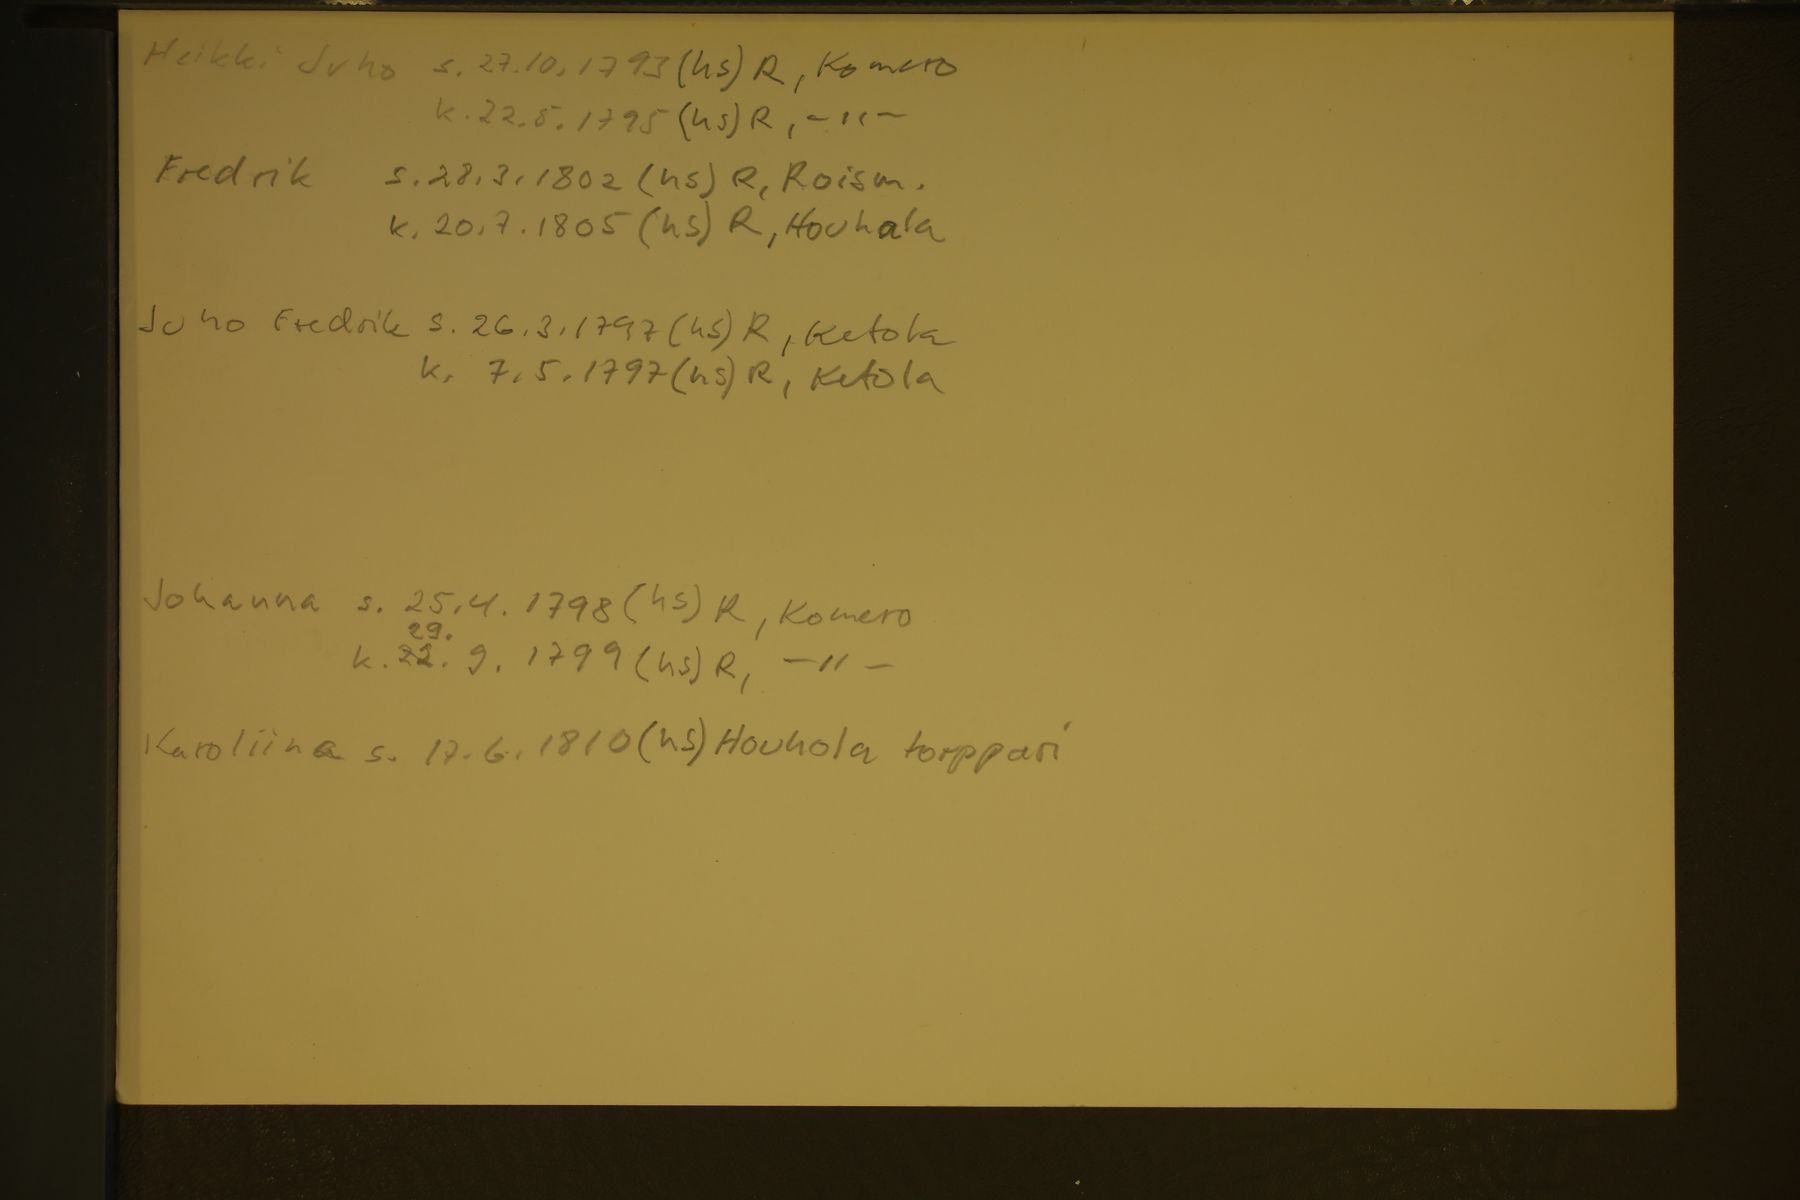 Heikki Juho s. 27.10.1793 (hs) R, Komero
k. 22.5.1795 (hs) R, -"-
Fredrik s. 28.3.1802 (hs) R, Roism.
k. 20.7.1805 (hs) R, Houhala
Juho Fredrik s. 26.3.1797 (hs) R, Ketola
k. 7.5.1797 (hs) R, Ketola
Johanna s. 25.4.1798 (hs) R, Komero
29.
k. 22.9.1799 (hs) R, -"-
Karoliina s. 17.6.1810 (hs) Houhola torppari